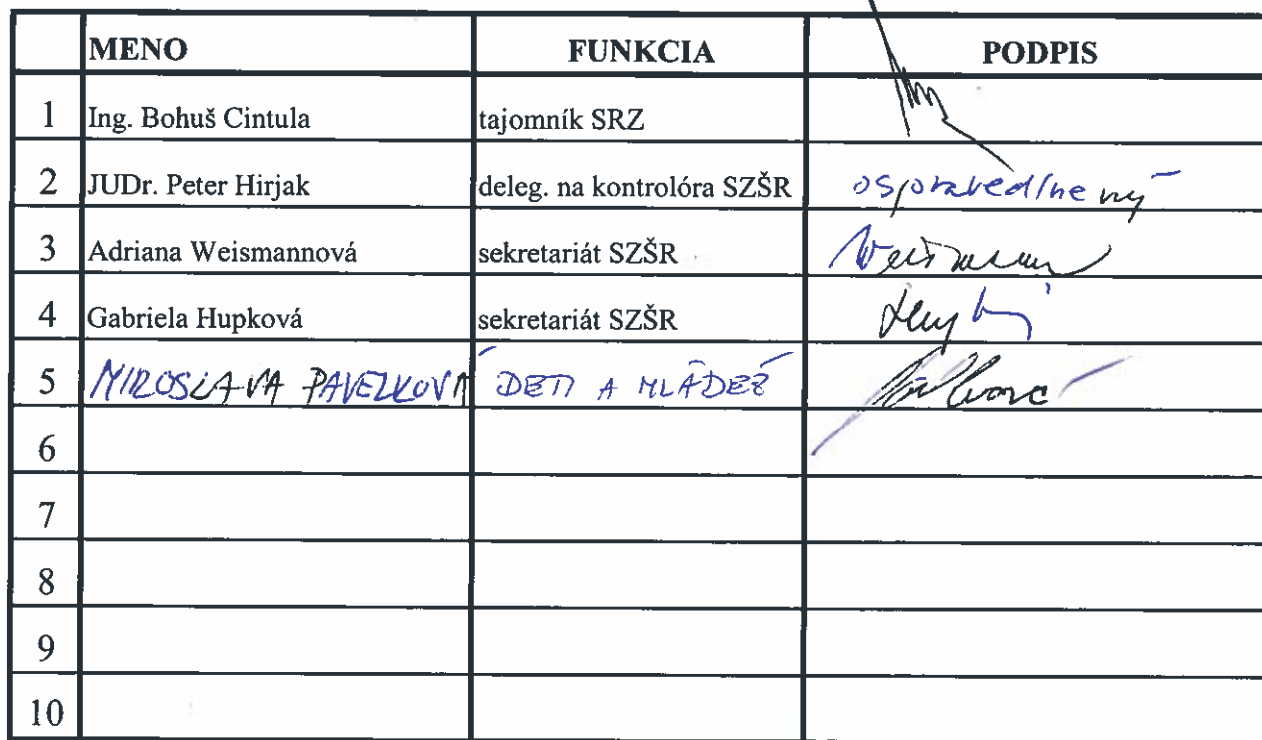 MENO FUNKCIA PODPIS
1 Ing. Bohuš Cintula tajomník SRZ
2 JUDr. Peter Hirjak deleg. na kontrolóra SZŠR ospravedlnený
3 Adriana Weismannová sekretariát SZŠR
4 Gabriela Hupková sekretariát SZŠR
5 MIROSLAVA PAVELKOVÁ DETI A MLÁDEŽ
6
7
8
9
10